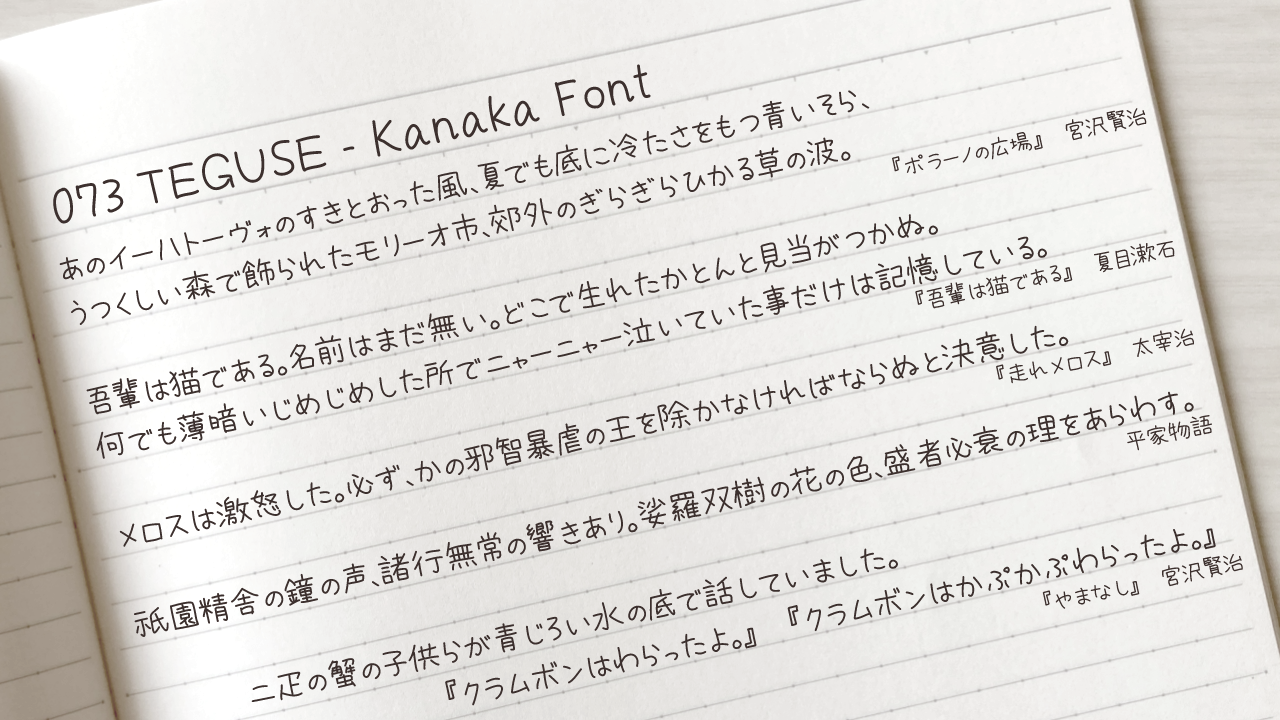 073 TEGUSE - Kanaka Font
あのイーハトーヴォのすきとおった風、夏でも底に冷たさをもつ青いそら、
うつくしい森で飾られたモリーオ市、郊外のぎらぎらひかる草の波。
『ポラーノの広場』 宮沢賢治
吾輩は猫である。名前はまだ無い。どこで生れたかとんと見当がつかぬ。
何でも薄暗いじめじめした所でニャーニャー泣いていた事だけは記憶している。
『吾輩は猫である』 夏目漱石
メロスは激怒した。必ず、かの邪智暴虐の王を除かなければならぬと決意した。
『走れメロス』 太宰治
祇園精舎の鐘の声、諸行無常の響きあり。娑羅双樹の花の色、盛者必衰の理をあらわす。
平家物語
二疋の蟹の子供らが青じろい水の底で話していました。
『クラムボンはわらったよ。』 『クラムボンはかぷかぷわらったよ。』
『やまなし』 宮沢賢治